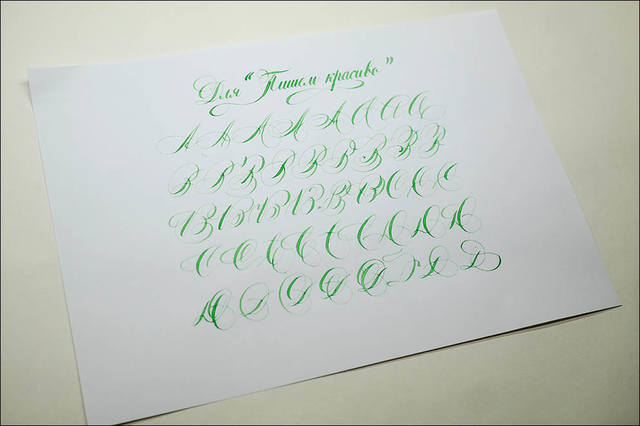 Для "Пишем красиво"
A A A A A A A A
B B B B B B B B B
B B B B B B C C C
C C C C C C
D D D D